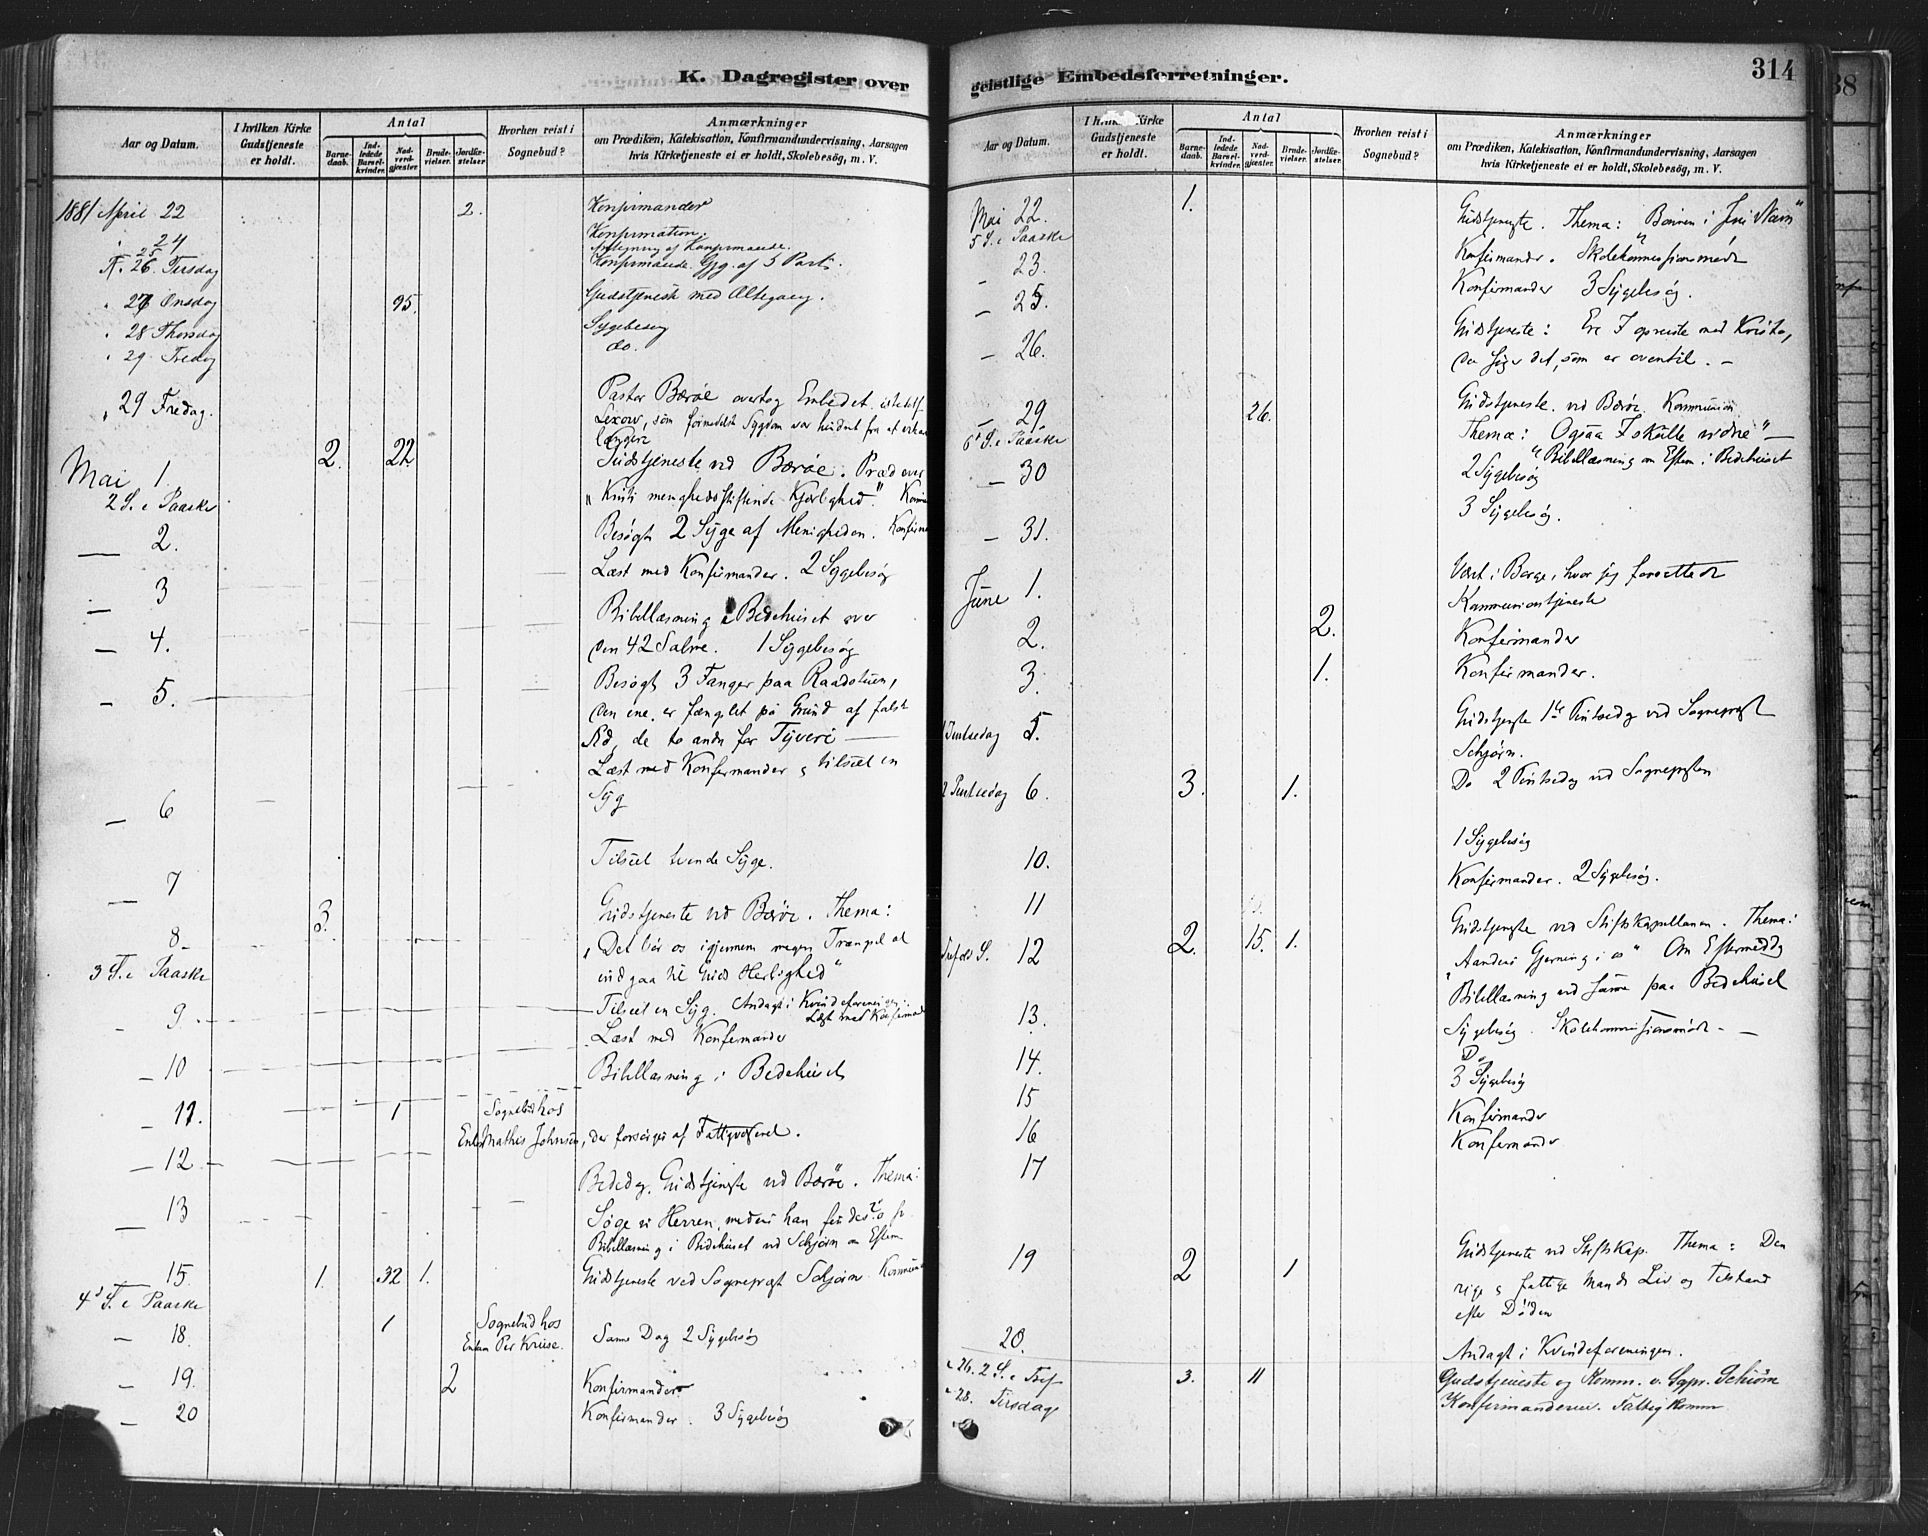 K. Dagregister over
Aar og Datum.
I hvilken Kirke Gudstjeneste er holdt.
Antal
Barnedaab.
Indledede Barselkvinder.
Nadverdgjæster.
Brudevielser.
Jordfæstelser.
Hvorhen reist i Sognebud?
Anmærkninger
om Prædiken, Katekisation, Konfirmandundervisning, Aarsagen
hvis Kirketjeneste ei er holdt, Skolebesøg, m. V.
1881 April 22 2. Konfirmander
24 Konfirmation.
25
26. Tirsdag
27 Onsdag 95. Gudstjeneste med Altergang.
28 Thorsdag Sygebesøg
29 Fredag do.
29 Fredag. Pastor Børøe overtog Embedet istedetf.
Lexow, som formedelst Sygdom var hindret fra at virke
længere
Mai 1. 2. 22 Gudstjeneste ved Børøe. Præd over
2 S. e Paaske "Kristi menighedsstiftende Kjærlighed."
2. Besøgt 2 Syge af Menigheden.
3 Læst med Konfirmander. 2 Sygebesøg
4. Bibellæsning i Bedehuset over
den 42 Salme. 1 Sygebesøg
5. Besøgt 3 Fanger paa Raadstuen,
den ene er fængslet på Grund af falsk
Ed, de to andre for Tyveri
Læst med Konfirmander & tilseet en
6 Syg
7 Tilseet tvende Syge.
8 3. Gudstjeneste ved Børøe. Thema:
3 S. e Paaske "Det bør os igjennem megen Trængsel at
indgaa til Guds Herlighed"
9. Tilseet en Syg. Andagt i Kvindeforeningen.
Læst med Konfirmander
10 Læst med Konfirmander
11. Bibellæsning i Bedehuset
12 1 Sognebud hos
Mathis Johnsen, der forsørges af Fattigvæsenet.
13 Bededag. Gudstjeneste ved Børøe. Thema:
Søge vi Herren, medens han findes
Bibellæsning i Bedehuset ved Schjørn om Efterm
15 1. 32 1. Gudstjeneste ved Sogneprest Schjørn
4 S. e Paaske
18. 1 Sognebud hos
Per Kruse. Samme Dag 2 Sygebesøg
19. 2 Konfirmander
20 Konfirmander. 3 Sygebesøg
geistlige Embedsforretninger.
314
Aar og Datum.
I hvilken Kirke Gudstjeneste er holdt.
Antal
Barnedaab.
Indledede Barselkvinder.
Nadverdgjæster.
Brudevielser.
Jordfæstelser.
Hvorhen reist i Sognebud?
Anmærkninger
om Prædiken, Katekisation, Konfirmandundervisning, Aarsagen
hvis Kirketjeneste ei er holdt, Skolebesøg, m. V.
Mai 22. 1. Gudstjeneste. Thema: Bønnen i Jesu Navn"
5 S. e Paaske
23. Konfirmander. Skolekommissionsmøde
25. Konfirmander 3 Sygebesøg.
26. Gudstjeneste: Ere I opreiste med Kristo,
da søger det, som er oventil.
29 26. Gudstjeneste ved Børøe. Kommunion
6 S. e Paaske Thema: Ogsaa I skulle vidne"
Bibellæsning om Efterm. i Bedehuset
30 2 Sygebesøg
31. 3 Sygebesøg.
June 1. Vært i Borge, hvor jeg forrettede
Kommunionstjeneste
2. 2. Konfirmander
3. 1. Konfirmander.
1 Pintsedag 5. Gudstjeneste 1ste Pintsedag ved Sogneprest
Schjørn.
2 Pintsedag 6. 3. 1. Do 2 Pintsedag ved Sognepresten
10. 1 Sygebesøg
11 Konfirmander. 2 Sygebesøg.
Trefold. S. 12 2. 15. 1. Gudstjeneste ved Stiftskapellanen. Thema:
"Aandens Gjerning i os" Om Eftermiddag
Bibellæsning ved samme paa Bedehuset
13. Sygebesøg. Skolekommissionsmøde
14. Do
15 3 Sygebesøg
16 Konfirmander
17 Konfirmander
19 2 1 Gudstjeneste ved Stiftskap. Thema: Den
rige & fattige Mands Liv og Tilstand
efter Døden
20. Andagt i Kvindeforeningen.
26. 2 S. e Tref 3. 11 Gudstjeneste og Komm. v. Sgpr. Schiørn
28. Tirsdag Konfirmander. Fattigkomm